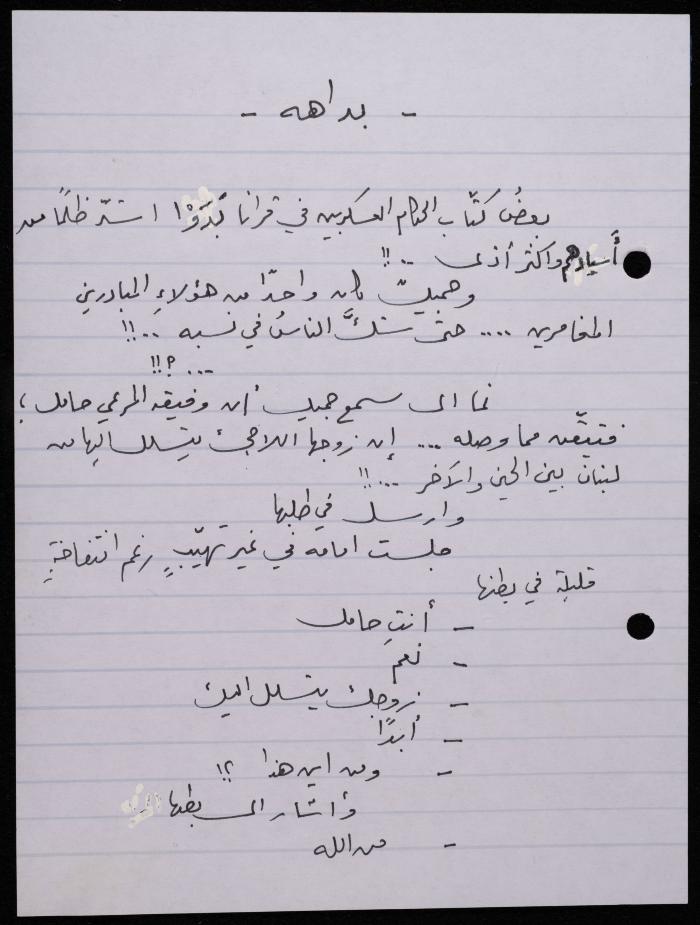 - بداهه -
بعضُ كتّاب الحكام العسكريين في قرانا بَدَوْا اشدّ ظلمًا من
أَسيادهم واكثر أذى ..!!
وحمبيك كان واحدًا من هؤلاءِ المبادرين
المغامرين .... حتى شكَّ الناسُ في نسبه ..!!
...؟!!
نما الى سمع حمبيك أن وفيقه المرعي حامل؛
فتيقّن مما وصله ... إن زوجها اللاجئ يتسلل اليها من
لبنان بين الحين والآخر ...!!
وارسل في طلبها
جلست امامه في غير تهيّبٍ رغم انتفاخةٍ
قليلة في بطنها
- أنتِ حامل
- نعم
- زوجك يتسلل اليك
- أبدًا
- ومن اين هذا ؟!
وأشار الى بطنها
- من الله